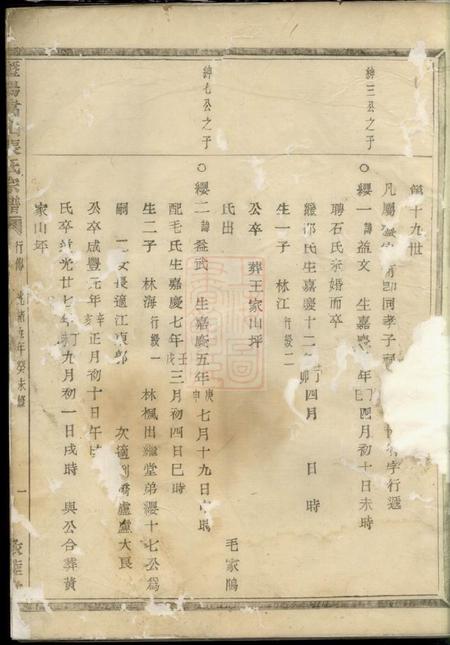 第十九世
凡屬
即同孝子
字行遞
紳三公之子
纓一諱益文 生嘉慶 年 四月初十日未時
聘石氏未婚而卒
繼邵氏生嘉慶十二年丁卯四月 日 時
生一子 林江行級二
公卒 葬王家山坪
紳七公之子
氏出 毛家隝
纓二諱益武 生嘉慶五年庚申七月十九日
配毛氏生嘉慶七年壬戌三月初四日巳時
生二子 林海行級一 林楓出繼堂弟纓十七公爲
嗣 二女長適江東郭 次適 盧盧大良
公卒咸豐元年辛亥正月初十日午時
氏卒道光廿七年丁未九月初一日戌時 與公合葬黃
家山坪
張氏宗譜
行傳
光緒 年癸未修
一